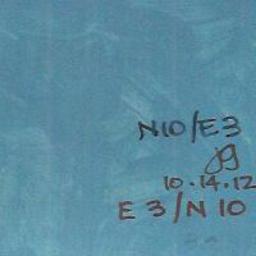 N10/E3
jg
10.14.12
E 3/N 10